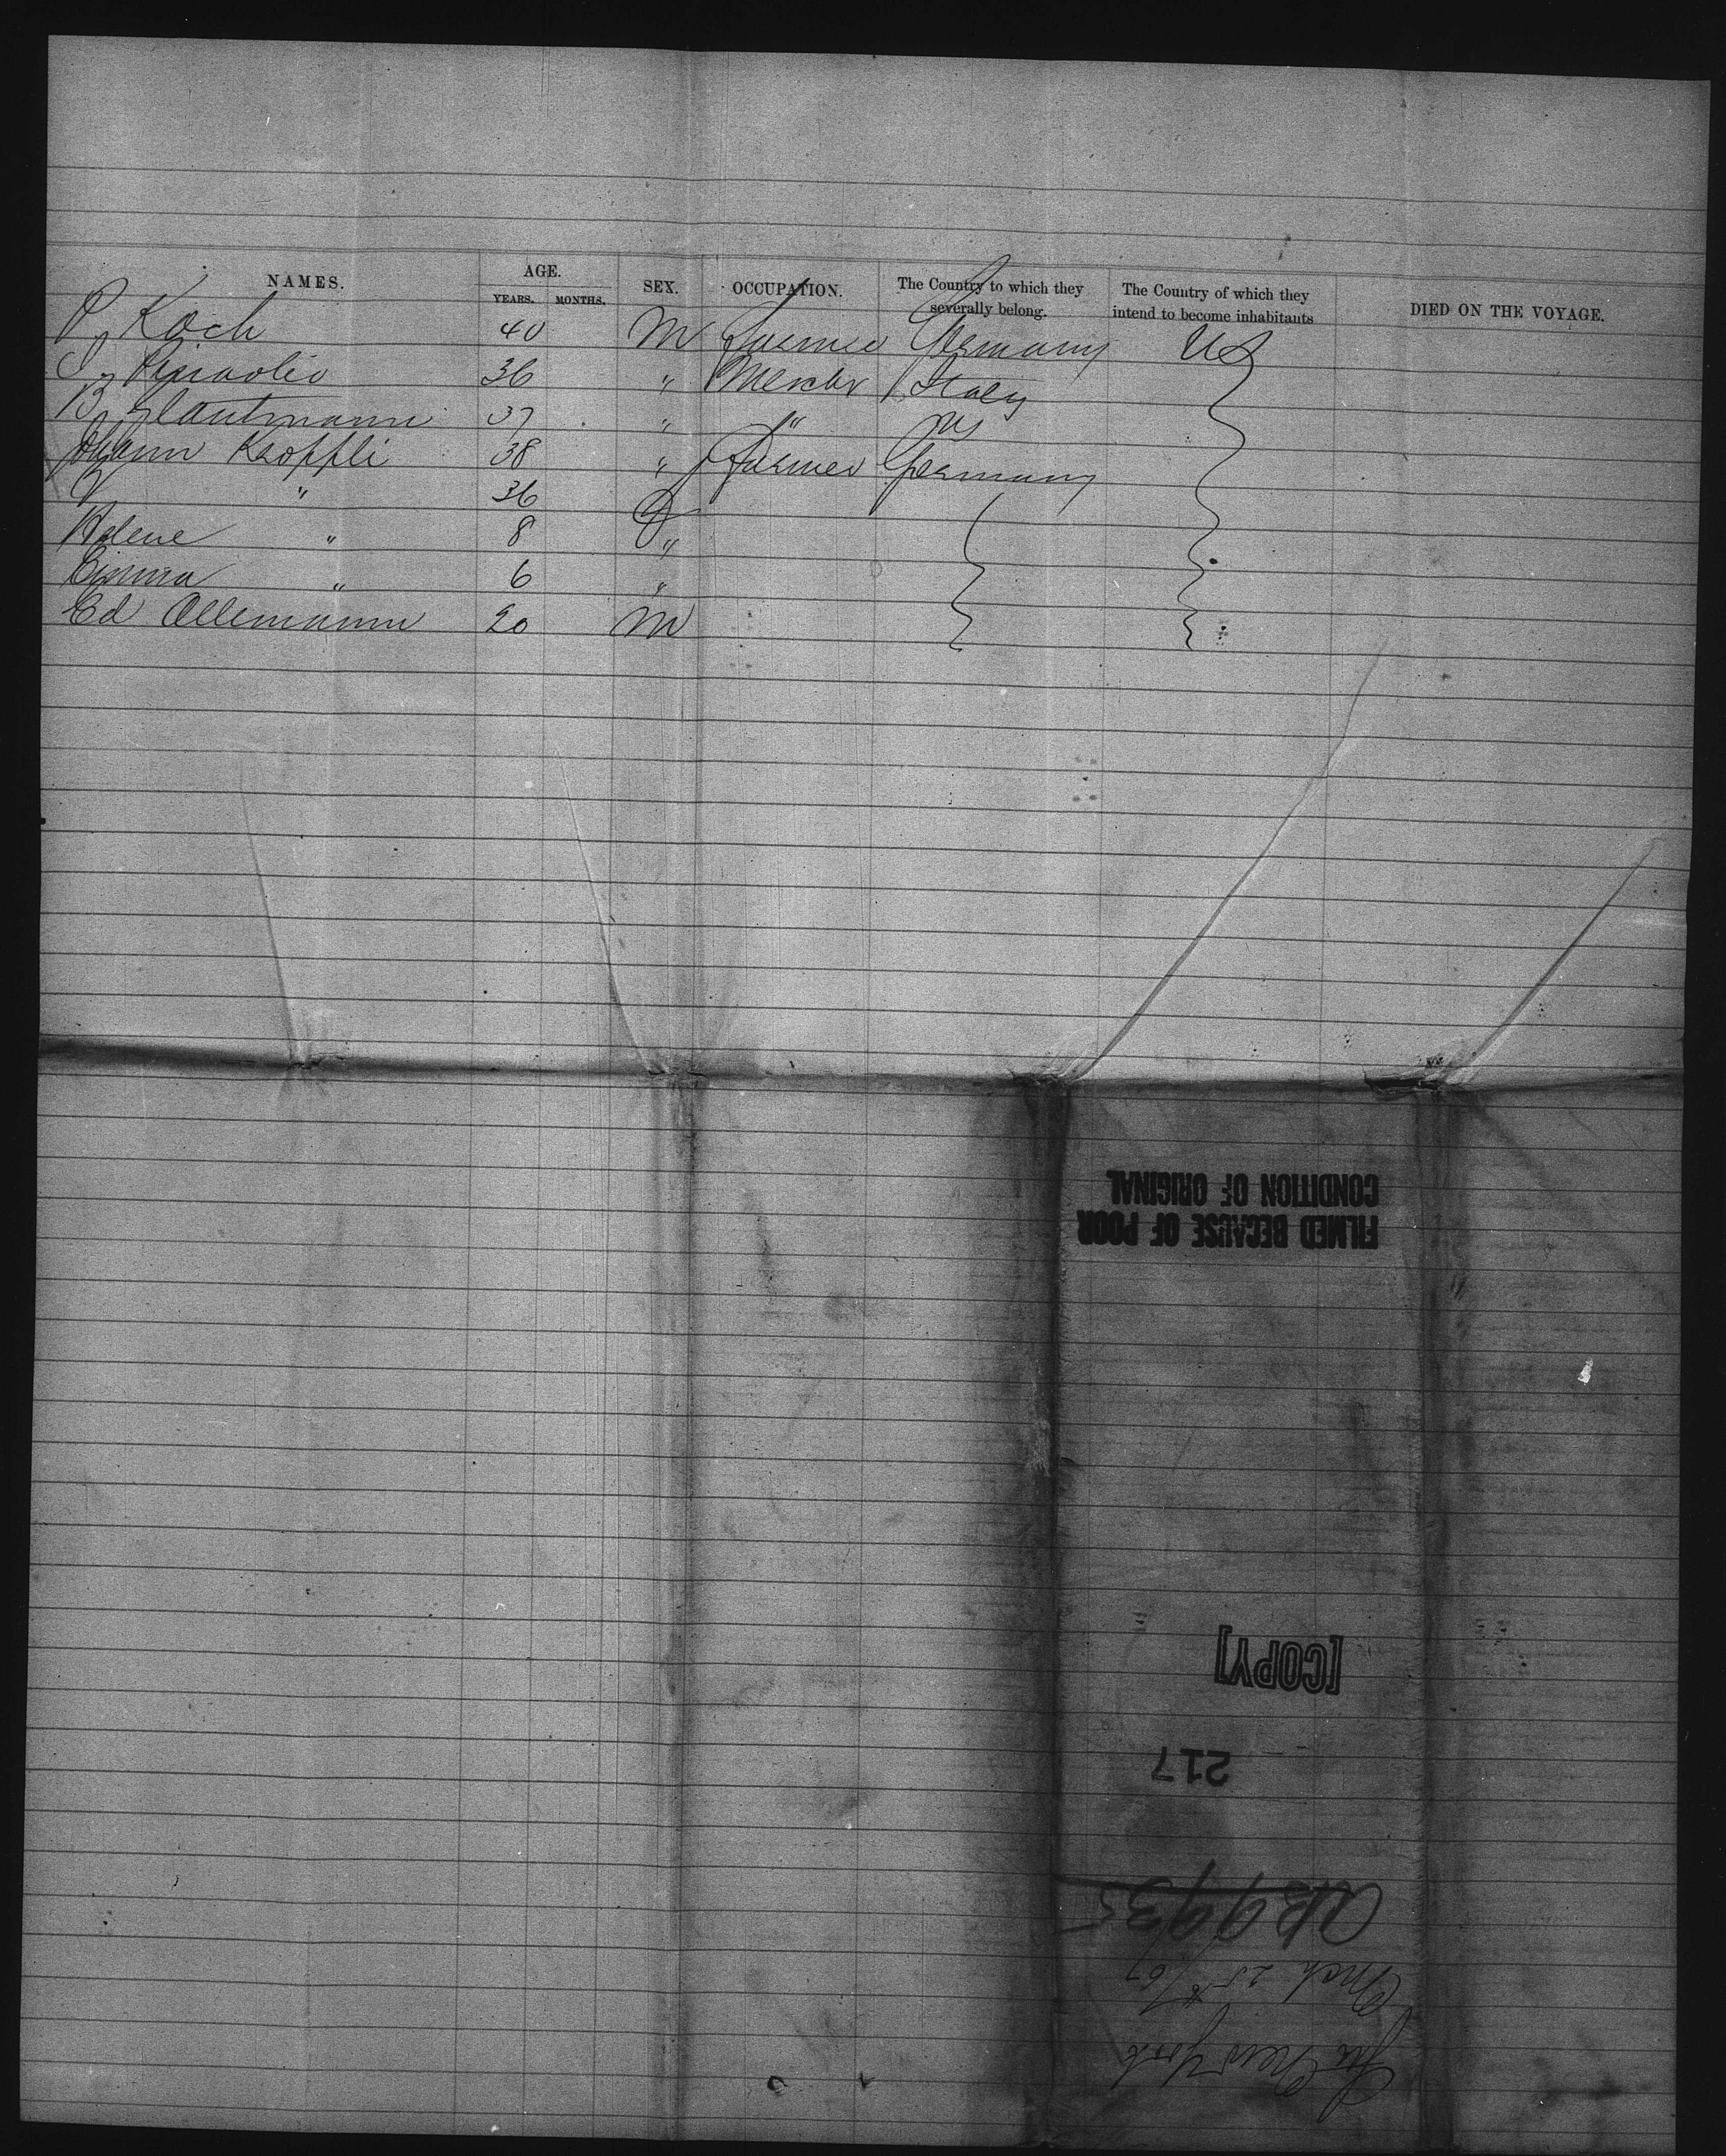 NAMES. AGE. SEX. OCCUPATION. The Country to which they severally belong. The Country of which they intend to become inhabitants DIED ON THE VOYAGE.
YEARS. MONTHS.
P Koch 40 M Farmer Germany US
36 " Merchr Italy
B 37 " " US
Johann Kaoppli 38 " Farmer Germany
" 36
Helene " 8 "
Emma " 6 "
Ed Allemann 20 M
FILMED BECAUSE OF POOR
CONDITION OF ORIGINAL
[COPY]
217
New York
Mch 25th/67